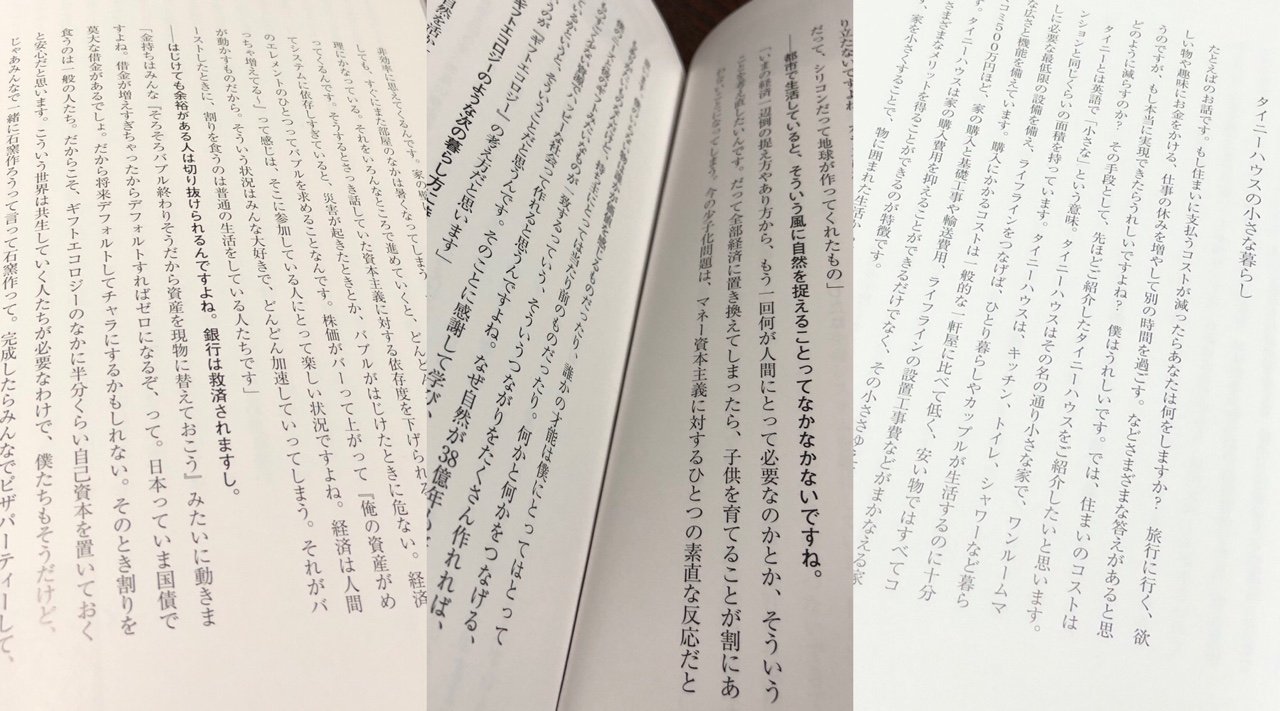 タイニーハウスの小さな暮らし
たとえばのお話です。もし住まいに支払うコストが減ったらあなたは何をしますか? 旅行に行く、欲
しい物や趣味にお金をかける、仕事の休みを増やして別の時間を過ごす。などさまざまな答えがあると思
うのですが、もし本当に実現できたらうれしいですよね? 僕はうれしいです。では、住まいのコストは
どのように減らすのか? その手段として、先ほどご紹介したタイニーハウスをご紹介したいと思います。
タイニーとは英語で「小さな」という意味。タイニーハウスはその名の通り小さな家で、ワンルームマ
ンションと同じぐらいの面積を持っています。タイニーハウスは、キッチン、トイレ、シャワーなど暮ら
しに必要な最低限の設備を備え、ライフラインをつなげば、ひとり暮らしやカップルが生活するのに十分
な広さと機能を備えています。購入にかかるコストは一般的な一軒屋に比べて低く、安い物ではすべてコ
コミ500万円ほど、家の購入と基礎工事や輸送費用、ライフラインの設置工事費などがまかなえる家
す。タイニーハウスは家の購入費用を抑えることができるだけでなく、その小ささゆえ
さまざまなメリットを得ることができるのが特徴です。
す、家を小さくすることで、物に囲まれた生活か
り立たないですよね
だって、シリコンだって地球が作ってくれたもの」
――都市で生活していると、そういう風に自然を捉えることってなかなかないですね。
「いまの経済一辺倒の捉え方やあり方から、もう一回何が人間にとって必要なのかとか、そういう
ことを考え直したいんです。だって全部経済に置き換えてしまったら、子供を育てることが割にあ
わないことになってしまう。今の少子化問題は、マネー資本主義に対するひとつの素直な反応だと
誰かの才能は僕にとってはとって
持ち主にとっては当たり前のものだったり。何かと何かをつなげる、
が一致するっていう、そういうつながりをたくさん作れれば、
ハッピーな社会って作れると思うんですよね。なぜ自然が38億年も
いるかというと、そういうことだと思うんです。そのことに感謝して学び、
うのが『ギフトエコロジー』の考え方だと思います」
ギフトエコロジーのような次の暮らし方にき
自然を活か
非効率に思えてくるんです。家の
しても、すぐにまた部屋のなかは暑くなってしまう
理にかなっている。それをいろんなところで進めていくと、どんど
ってくるんです。そうするとさっき話していた資本主義に対する依存度を下げられる
てシステムに依存しすぎていると、災害が起きたときとか、バブルがはじけたときに危ない。経済
のエレメントのひとつってバブルを求めることなんです。株価がバーって上がって『俺の資産がめ
っちゃ増えてる〜』って感じは、そこに参加している人にとって楽しい状況ですよね。経済は人間
が動かすものだから。そういう状況はみんな大好きで、どんどん加速していってしまう。それがバ
ーストしたときに、割りを食うのは普通の生活をしている人たちです」
――はじけても余裕がある人は切り抜けられるんですよね。銀行は救済されますし。
「金持ちはみんな『そろそろバブル終わりそうだから資産を現物に替えておこう』みたいに動きま
すよね。借金が増えすぎちゃったからデフォルトすればゼロになるぞ、って。日本っていま国債で
莫大な借金があるでしょ。だから将来デフォルトしてチャラにするかもしれない。そのとき割りを
食うのは一般の人たち。だからこそ、ギフトエコロジーのなかに半分くらい自己資本を置いておく
と安心だと思います。こういう世界は共生していく人たちが必要なわけで、僕たちもそうだけど、
じゃあみんなで一緒に石窯作ろうって言って石窯作って。完成したらみんなでピザパーティーして、